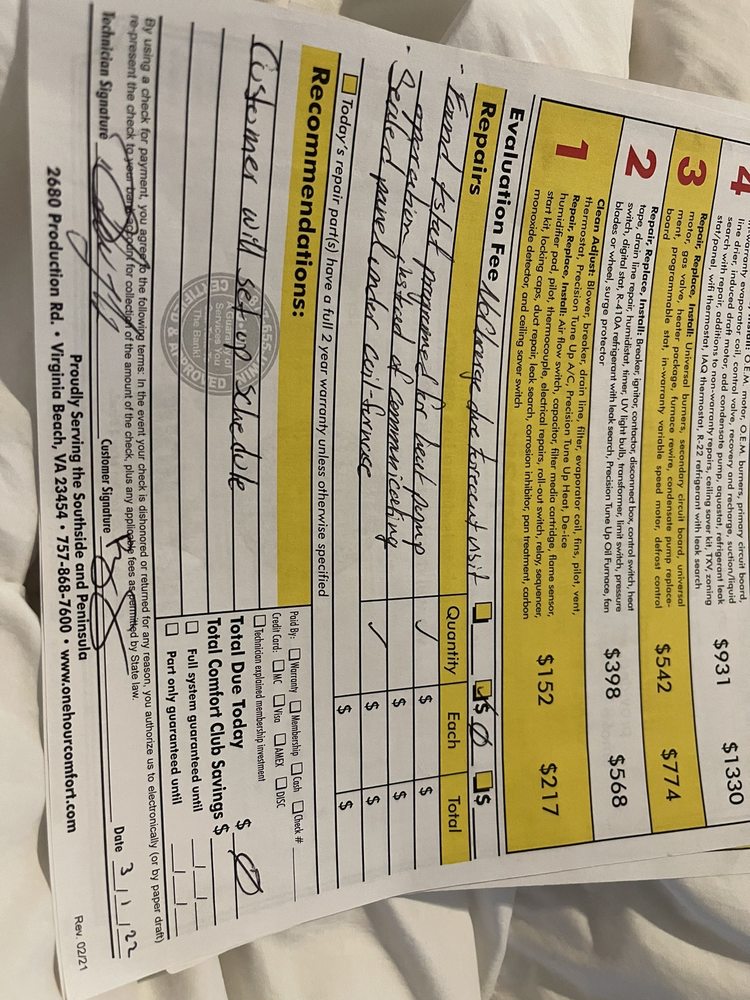 4
in-warranty evaporator coil, control valve, recovery and recharge, suction/liquid
line drier, induced draft motor, add condensate pump, aquastat, refrigerant leak
search with repair, additions to non-warranty repairs, ceiling saver kit, TXV, zoning
stat/panel, wifi thermostat, IAQ thermostat, R-22 refrigerant with leak search
$931 $1330
3
Repair, Replace, Install: Universal burners, secondary circuit board, universal
motor, gas valve, heater package, furnace rewire, condensate pump replace-
ment, programmable stat, in-warranty variable speed motor, defrost control
board
$542 $774
2
Repair, Replace, Install: Breaker, ignitor, contactor, disconnect box, control switch, heat
tape, drain line repair, humidistat, timer, UV light bulb, transformer, limit switch, pressure
switch, digital stat, R-410A refrigerant with leak search, Precision Tune Up Oil Furnace, fan
blades or wheel, surge protector
$398 $568
1
Clean Adjust: Blower, breaker, drain line, filter, evaporator coil, fins, pilot, vent,
thermostat, Precision Tune Up A/C, Precision Tune Up Heat, De-ice
Repair, Replace, Install: Air flow switch, capacitor, filter media cartridge, flame sensor,
humidifier pad, pilot, thermocouple, electrical repairs, roll-out switch, relay, sequencer,
start kit, locking caps, duct repair, leak search, corrosion inhibitor, pan treatment, carbon
monoxide detector, and ceiling saver switch
$152 $217
Evaluation Fee No Charge due to recent visit $ 0 $
Repairs Quantity Each Total
- Found tstat programmed for heat pump ✓ $ $
operation instead of communicating $ $
- Sealed panel under coil-furnace ✓ $ $
Today's repair part(s) have a full 2 year warranty unless otherwise specified $ $
Recommendations:
Customer will set up schedule
Paid By: Warranty Membership Cash Check #
Credit Card: MC Visa AMEX DISC
Technician explained membership investment
Total Due Today $ 0
Total Comfort Club Savings $
Full system guaranteed until
Part only guaranteed until
By using a check for payment, you agree to the following terms: In the event your check is dishonored or returned for any reason, you authorize us to electronically (or by paper draft)
re-present the check to your bank account for collection of the amount of the check, plus any applicable fees as permitted by State law.
Technician Signature Customer Signature Date 3/1/22
Proudly Serving the Southside and Peninsula
2680 Production Rd. • Virginia Beach, VA 23454 • 757-868-7600 • www.onehourcomfort.com
Rev. 02/21